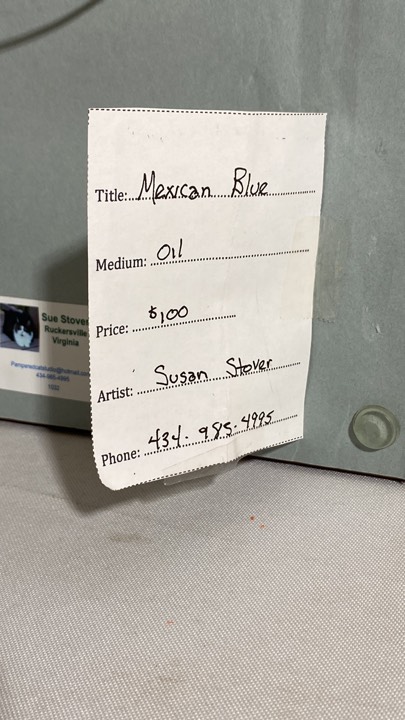 Title: Mexican Blue
Medium: Oil
Price: $100
Artist: Susan Stover
Phone: 434. 985.4995
Sue Stover
Ruckersville
Virginia